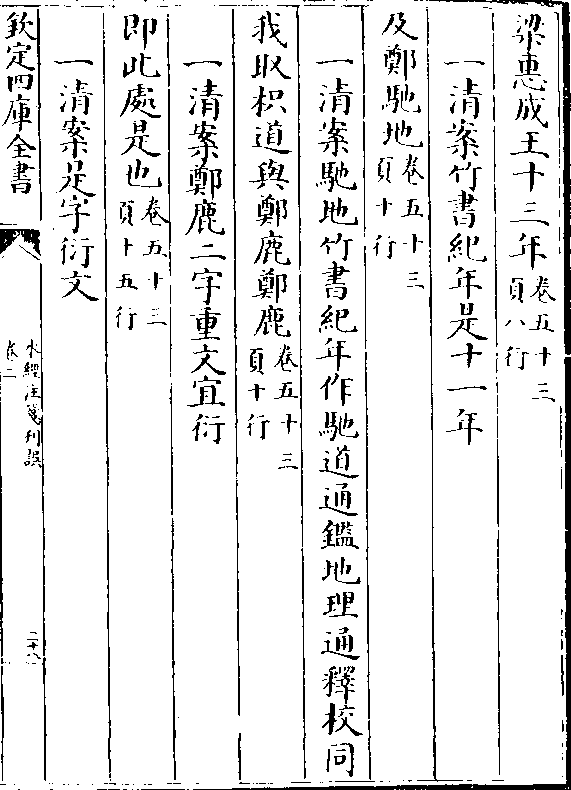 梁惠成王十三年卷五十三頁八行
一清案竹書紀年是十一年
及鄭馳地卷五十三頁十行
一清案馳地竹書紀年作馳道通鑑地理通釋校同
我取枳道與鄭鹿鄭鹿卷五十三頁十行
一清案鄭鹿二字重文宜衍
即此處是也卷五十三頁十五行
一清案是字衍文
欽定四庫全書
水經注箋刊誤
卷二
二十八